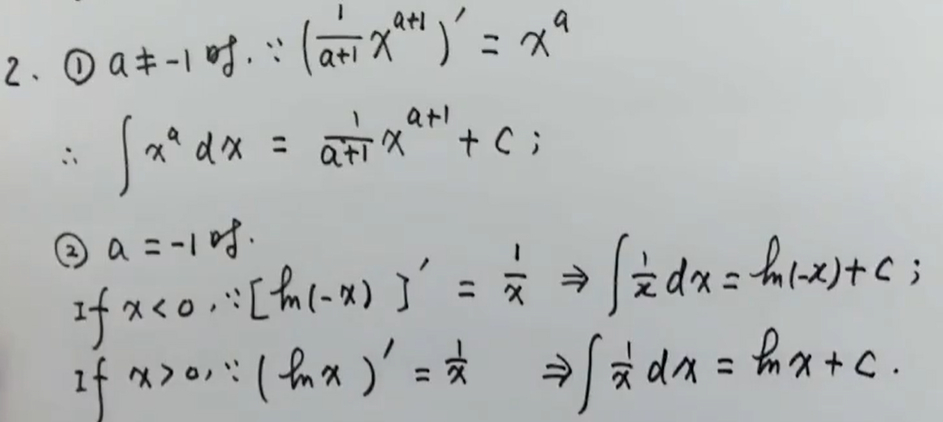 2. ① a ≠ -1 时. ∵ (1/(a+1) x^(a+1))′ = x^a
∴ ∫ x^a dx = 1/(a+1) x^(a+1) + C ;
② a = -1 时.
If x < 0, ∵ [ln(-x)]′ = 1/x ⇒ ∫ 1/x dx = ln(-x) + C ;
If x > 0, ∵ (ln x)′ = 1/x ⇒ ∫ 1/x dx = ln x + C .